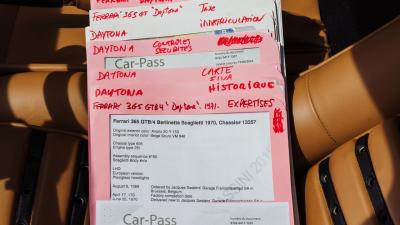 Ferrari 365 GT "Daytona" Taxe
immatriculation
DAYTONA
DAYTONA CONTRÔLES
SECURITÉS
Car-Pass
DAYTONA CARTE
SIVA
DAYTONA HISTORIQUE
Ferrari 365 GTB4 "Daytona" 1971. EXPERTISES
Ferrari 365 GTB/4 Berlinetta Scaglietti 1970, Chassier 13357
Original exterior color:
Original interior color: Beige Scuro VM 846
Chassis type 605
Engine type 251
Assembly sequence #160
Scaglietti Body #n/a
LHD
European version
Plexiglass headlights
August 6, 1969 Ordered by Jacques Swaters' Garage Francorchamps SA in
Brussels, Belgium
April 17, 170 Factory completion date
Car-Pass